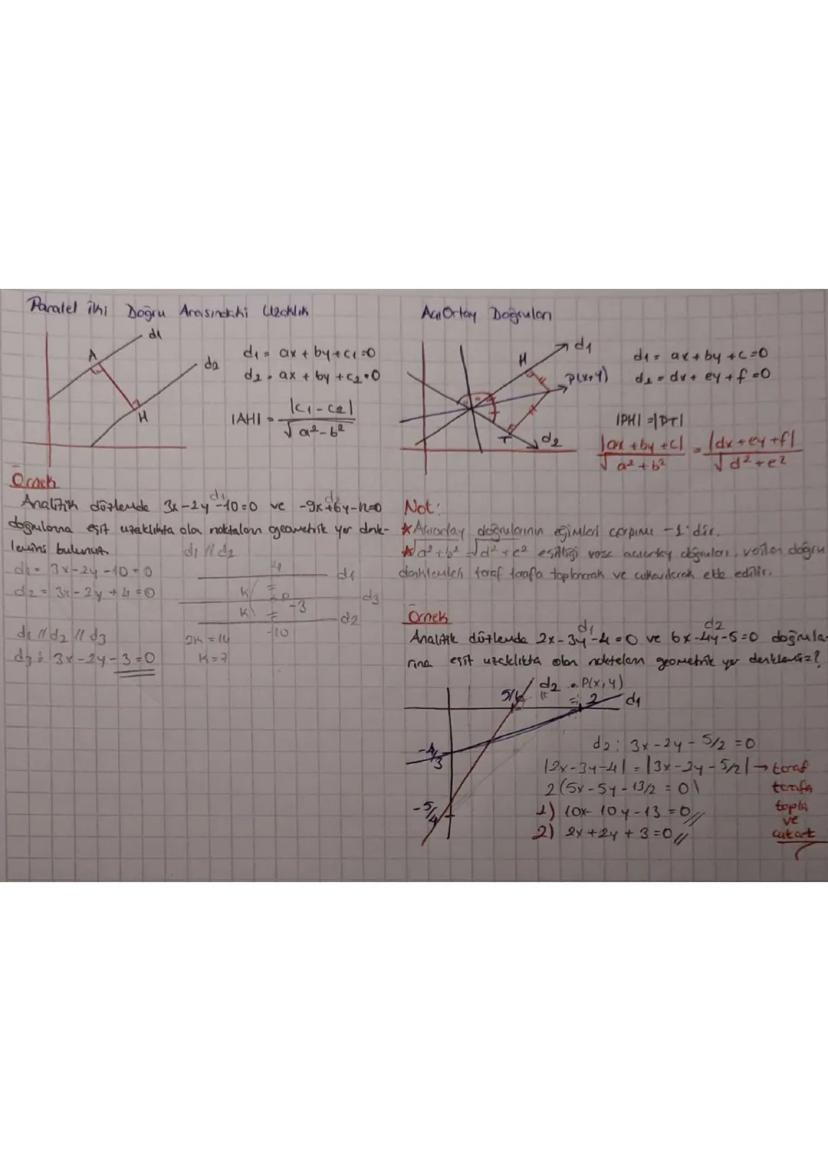 Paralel İki Doğru Arasındaki Uzaklık
d1
A
d2
H
d1 = ax + by + c1 = 0
d2 = ax + by + c2 = 0
|AH| = |c1 - c2| / √a² - b²
Örnek
Analitik düzlemde 3x - 2y - 10 = 0 ve -9x + 6y - 12 = 0
d1 d2
doğrularına eşit uzaklıkta olan noktaların geometrik yer denk-
lemini bulunuz.
d1 // d2
d1 = 3x - 2y - 10 = 0
d2 = 3x - 2y + 4 = 0
d1 // d2 // d3
d3 : 3x - 2y - 3 = 0
4 d1
K
d3
K -3
d2
-10
2K = 14
K = 7
AçıOrtay Doğruları
d1
H
P(x,y)
T
d2
d1 = ax + by + c = 0
d2 = dx + ey + f = 0
|PH| = |PT|
|ax + by + c| / √a² + b² = |dx + ey + f| / √d² + e²
Not:
* Açıortay doğrularının eğimleri çarpımı -1'dir.
* √a² + b² = √d² + e² eşitliği varsa açıortay doğruları, verilen doğru
denklemleri taraf tarafa toplanarak ve çıkarılarak elde edilir.
Örnek
d1 d2
Analitik düzlemde 2x - 3y - 4 = 0 ve 6x - 4y - 5 = 0 doğrula-
rına eşit uzaklıkta olan noktaların geometrik yer denklemi = ?
5/6 d2 P(x,y)
2 d1
-4/3
-5/4
d2 : 3x - 2y - 5/2 = 0
|2x - 3y - 4| = |3x - 2y - 5/2| → taraf
2(5x - 5y - 13/2 = 0) tarafa
1) 10x - 10y - 13 = 0 // topla
ve
2) 2x + 2y + 3 = 0 // çıkart